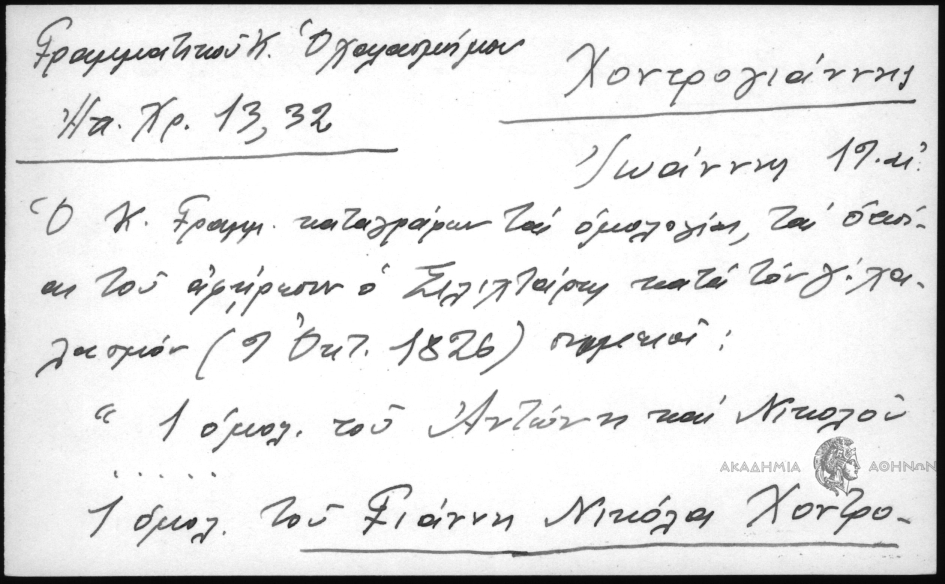 Γραμματικοῦ Κ. Ὁ χαλασμὸς
Ἠπ. Χρ. 13, 32
Χοντρογιάννης
Ἰωάννης 19. αἰ.
Ὁ Κ. Γραμμ. καταγράφων τὰς ὁμολογίας, τὰς ὁποί-
ας τοῦ ἀφῄρεσεν ὁ Σιλιχτάρης κατὰ τὸν γ΄. χα-
λασμὸν (9 Ὀκτ. 1826) σημειοῖ:
" 1 ὁμολ. τοῦ Ἀντώνη καὶ Νικολοῦ
......
1 ὁμολ. τοῦ Γιάννη Νικόλα Χοντρο-
ΑΚΑΔΗΜΙΑ ΑΘΗΝΩΝ